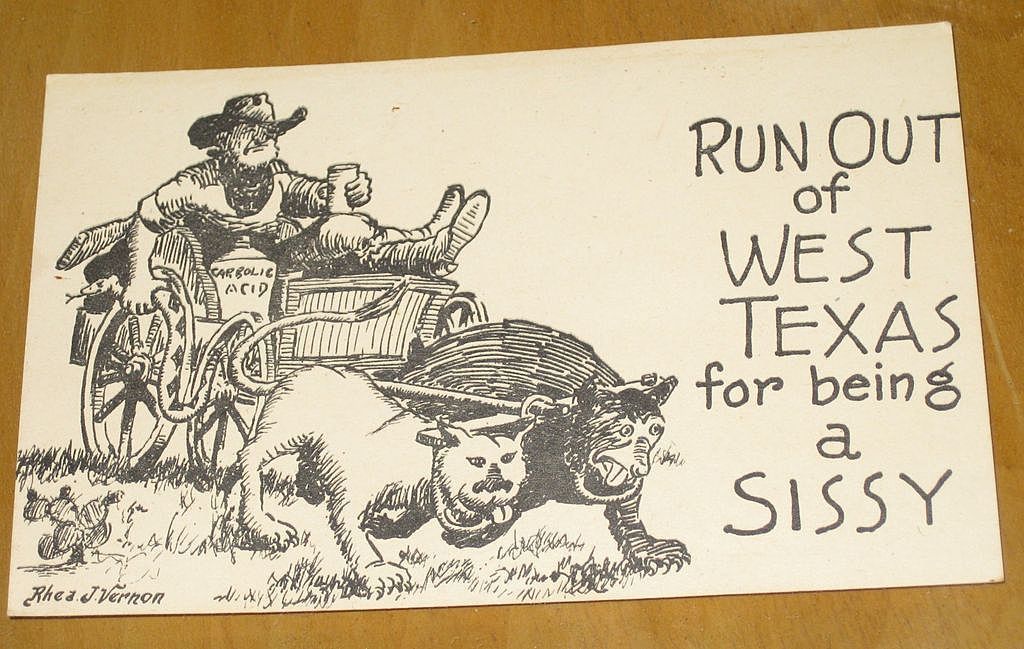 CARBOLIC
ACID
RUN OUT
of
WEST
TEXAS
for being
a
SISSY
Rhea. J. Vernon